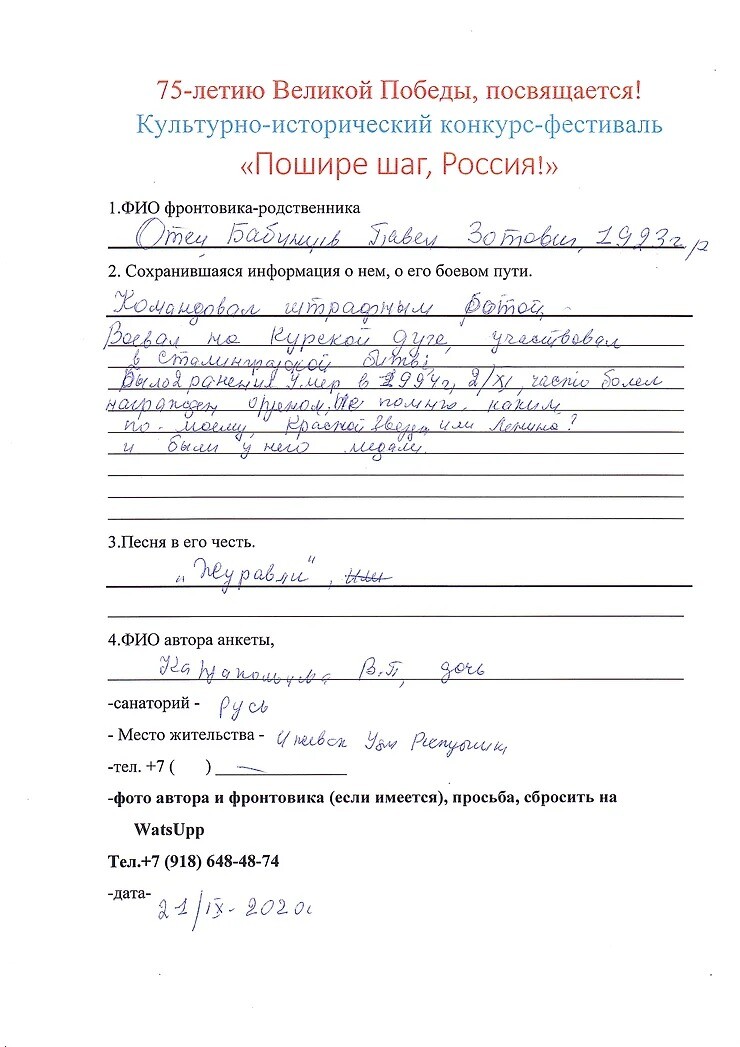 75-летию Великой Победы, посвящается!
Культурно-исторический конкурс-фестиваль
«Пошире шаг, Россия!»
1.ФИО фронтовика-родственника
Отец Павел Зотович, 1923г/р
2. Сохранившаяся информация о нем, о его боевом пути.
Командовал штрафным ротой
Воевал на Курской дуге, участвовал
в Сталинградской битве
ранения Умер в 1994г, 2/XI, часто болел
награжден орденом, Не помню каким
по-моему, Красной Звезды или Ленина?
и были у него медали.
3.Песня в его честь.
„Журавли", или
4.ФИО автора анкеты,
В.П, дочь
-санаторий - Русь
- Место жительства - Ижевск Удм Республики
-тел. +7 ( ) —
-фото автора и фронтовика (если имеется), просьба, сбросить на
WatsUpp
Тел.+7 (918) 648-48-74
-дата- 21/IX-2020г